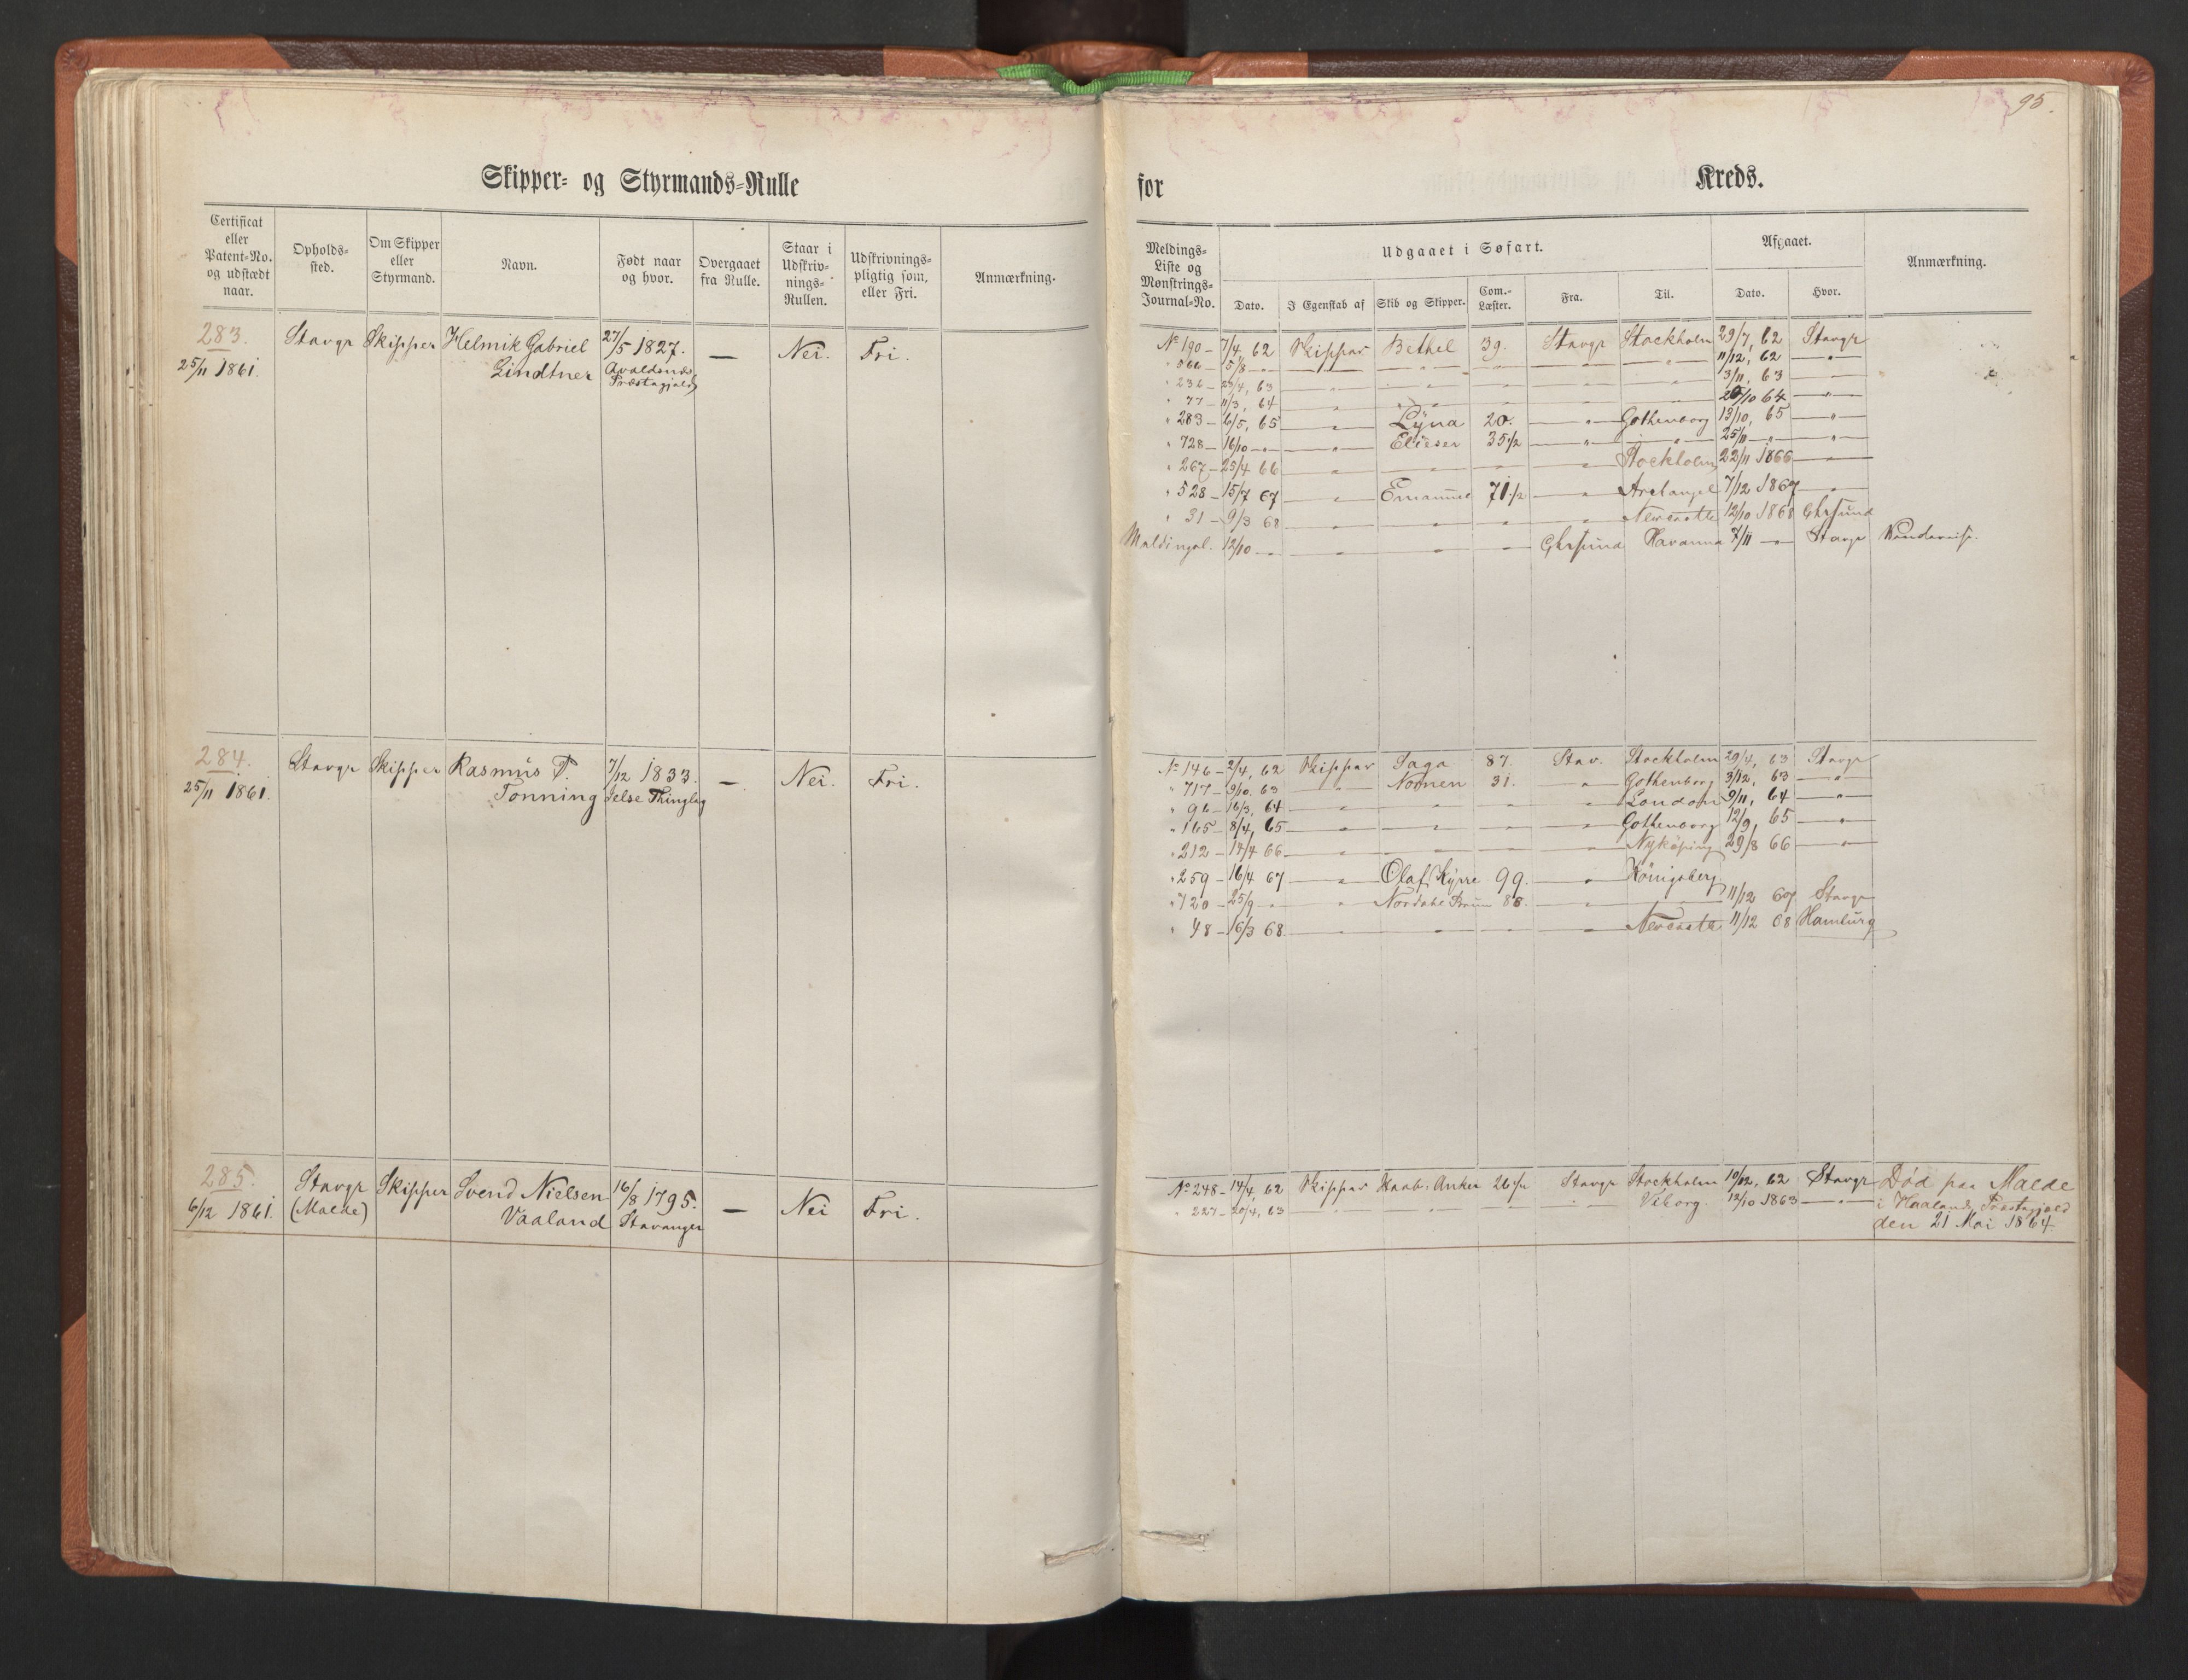 95.
Skipper- og Styrmands-Rulle
for Kreds.
Certificat eller Patent-No. og udstædt naar.
Opholds-sted.
Om Skipper eller Styrmand.
Navn.
Født naar og hvor.
Overgaaet fra Rulle.
Staar i Udskriv-nings-Rullen.
Udskrivnings-pligtig som, eller Fri.
Anmærkning.
Meldings-Liste og Mønstrings-Journal-No.
Udgaaet i Søfart.
Dato. I Egenskab af Skib og Skipper. Com.-Læster. Fra. Til.
Afgaaet.
Dato. Hvor.
Anmærkning.
283. Stavgr Skipper Helmik Gabriel 27/5 1827. — Nei. Fri.
25/11 1861. Lindtner Avaldsnæs Præstegjæld
No 190 – 7/4, 62 Skipper Bethel 39. Stavgr Stockholm 29/7, 62 Stavgr
" 566 – 15/8 –"– –"– –"– –"– –"– –"– 11/12, 62 –"–
" 236 – 29/4, 63 –"– –"– –"– –"– –"– 3/11, 63 –"–
" 77 – 11/3, 64 –"– –"– –"– –"– –"– 26/10 64 –"–
" 283 – 6/5, 65 –"– Lyna 20. –"– Gothenborg 13/10, 65 –"–
" 728 – 16/10 –"– –"– Elieser 35 1/2 –"– –"– 25/11 –"– –"–
" 267 – 25/4 66 –"– –"– –"– –"– Stockholm 22/11 1866 –"–
" 528 – 15/7 67 –"– Emanuel 71 1/2 –"– Archangel 7/12 1867 –"–
" 31 – 9/3 68 –"– –"– –"– –"– Newcastle 12/10 1868 Chrsund
Meldingsl. 12/10 –"– –"– –"– –"– Chrsund Havanna 7/11 –"– Stavgr
284. Stavgr Skipper Rasmus T. 7/12 1833. — Nei. Fri.
25/11 1861. Tonning Jelse Thinglag
No 146 – 2/4, 62 Skipper Saga 87. Stav. Stockholm 29/4, 63 Stavgr
" 717 – 9/10, 63 –"– Nornen 31. –"– Gothenborg 3/12, 63 –"–
" 96 – 16/3, 64 –"– –"– –"– –"– London 9/11, 64 –"–
" 165 – 8/4, 65 –"– –"– –"– –"– Gothenborg 12/9, 65 –"–
" 212 – 14/4 66 –"– –"– –"– –"– Nykøping 29/8 66 –"–
" 259 – 16/4 67 –"– Olaf Kyrre 99. –"– Königsberg.
" 720 – 25/9 –"– –"– Nordahl Brun 88. –"– –"– 11/12 67 Stavgr
" 48 – 16/3 68 –"– –"– –"– –"– Newcastle 11/12 68 Hamburg
285. Stavgr Skipper Svend Nielsen 16/8 1795. — Nei Fri.
6/12 1861. (Malde) Vaaland Stavanger
No 248 – 14/4, 62 Skipper Haab: Anker 26 1/2 Stavgr Stockholm 10/12, 62 Stavgr Død paa Malde
" 227 – 20/4, 63 –"– –"– –"– –"– Viborg. 12/10 1863 –"– i Haalands Præstegjæld
den 21 Mai 1864.